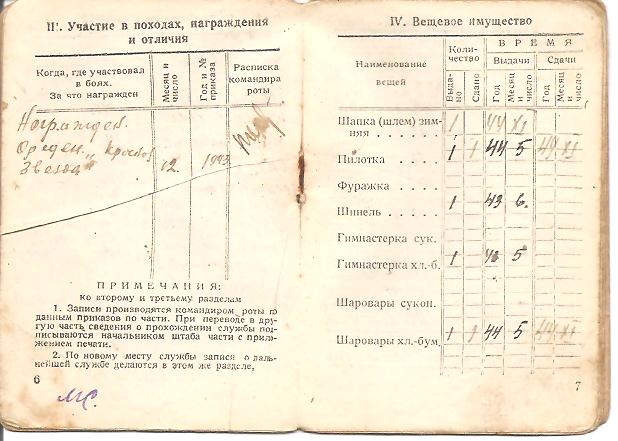 III. Участие в походах, награждения
и отличия
Когда, где участвовал
в боях.
За что награжден
Месяц и
число
Год и №
приказа
Расписка
командира
роты
Награжден
Орден „Красной
Звезда"
12
1943
ПРИМЕЧАНИЯ:
ко второму и третьему разделам
1. Записи производятся командиром роты по
данным приказов по части. При переводе в дру-
гую часть сведения о прохождении службы под-
писываются начальником штаба части с прило-
жением печати.
2. По новому месту службы записи о даль-
нейшей службе делаются в этом же разделе,
6
IV. Вещевое имущество
Наименование
вещей
Коли-
чество
ВРЕМЯ
Выдачи
Сдачи
Выда-
но
Сдано
Год
Месяц
и
число
Год
Месяц
и
число
Шапка (шлем) зим-
няя . . . . . . 1 44 XI
Пилотка . . . . 1 1 44 5 44 XI
Фуражка . . . .
Шинель . . . . . 1 43 6.
Гимнастерка сук.
Гимнастерка хл.-б. 1 43 5
Шаровары сукон.
Шаровары хл.-бум. 1 1 44 5 44 XI
7